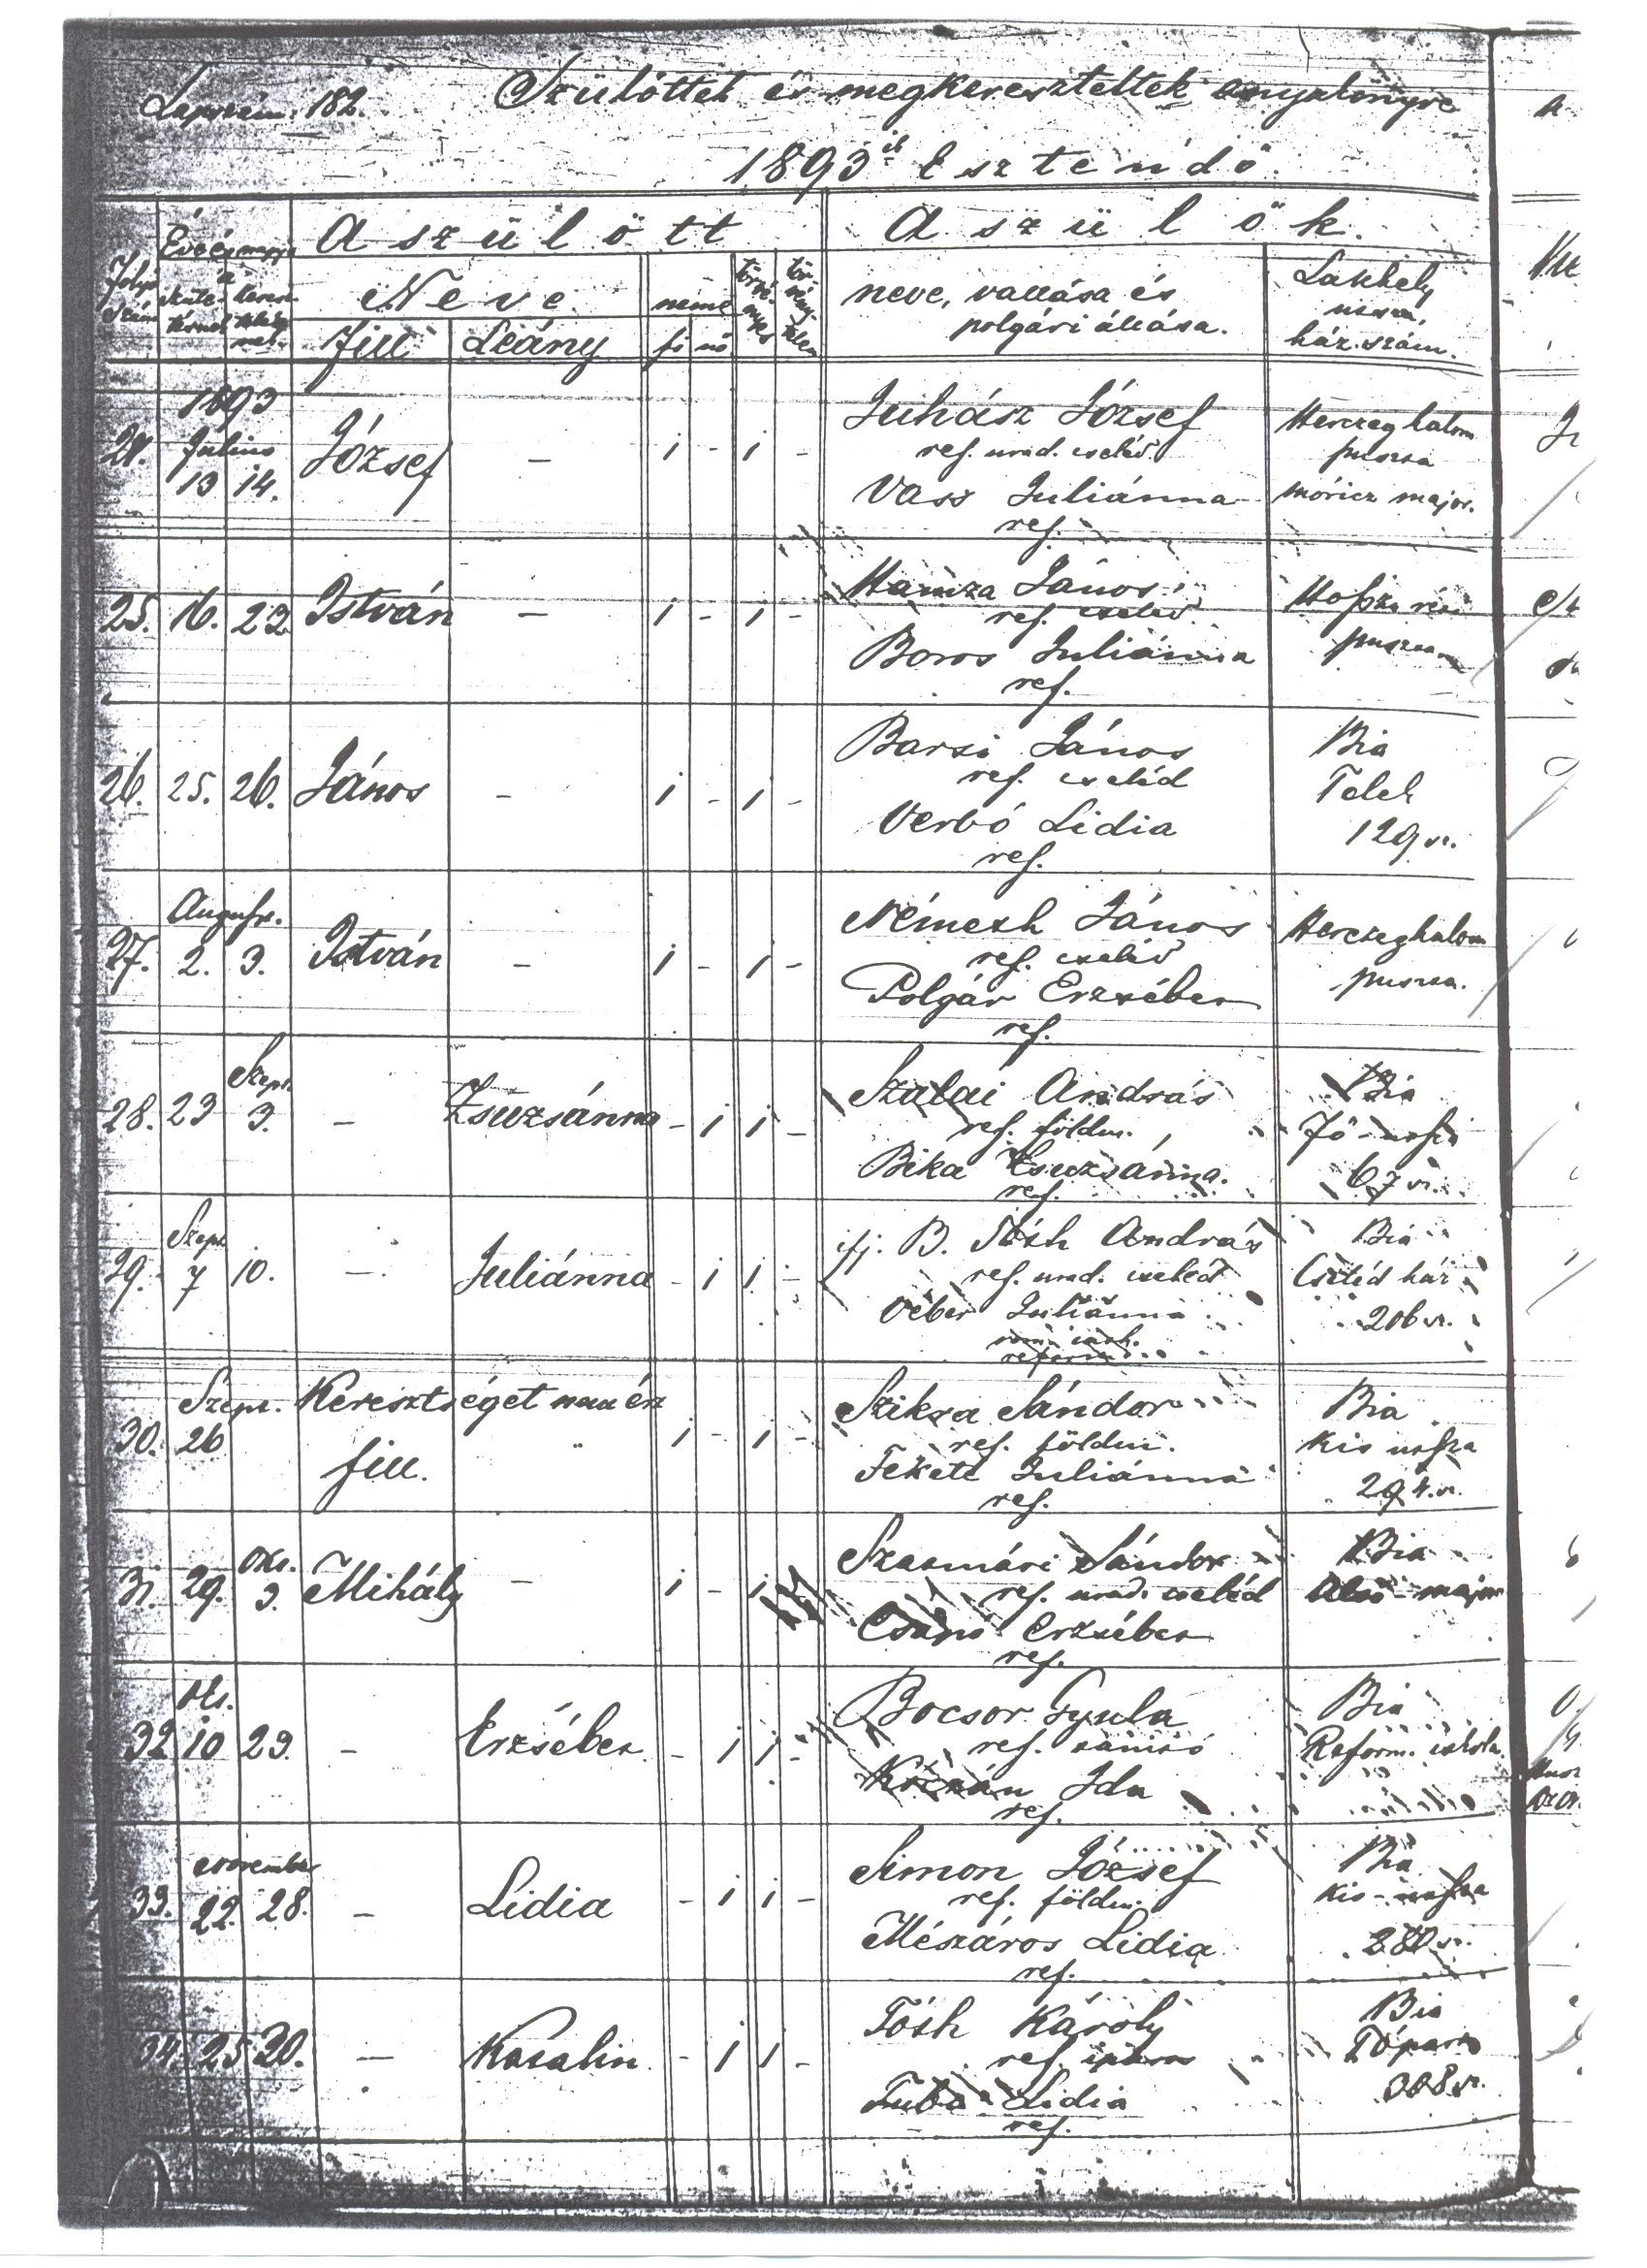 Lapszám. 182. Szülöttek és megkereszteltek anyakönyve
1893ik Esztendő.
A szülött A szülők.
Folyó Szám Neve neme neve, vallása és polgári állása. Lakhely utcza, ház szám.
Fiu Leány fi nő
1893
24. Julius 13 14. József – 1 - 1 - Juhász József Herczeghalom
ref. urad. cseléd puszta
Vass Juliánna móricz major.
ref.
25. 16. 23. István – 1 - 1 - Hamza János
ref. cseléd
Boros Juliánna
ref.
26. 25. 26. János – 1 - 1 - Barsi János Bia
ref. cseléd Telek
Verbó Lidia 129 sz.
ref.
August.
27. 2. 3. István – 1 - 1 - Németh János Herczeghalom
ref. cseléd puszta.
Polgár Erzsébet
ref.
Szept.
28. 23 3. – Zsuzsánna - 1 1 - Szalai András Bia
ref. földm. Fő-utsza
Bika Zsuzsánna. 67 sz.
ref.
Szept
29. 7 10. – Juliánna - 1 1 - ifj. B. Tóth András Bia
ref. urad. cseléd Cseléd ház
Véber Juliánna 206 sz.
rom. cath.
reform.
Szept. Keresztséget nem ért Szikra Sándor Bia
30. 26 fiu. 1 - 1 - ref. földm. Kis utsza
Fekete Juliánna 294. sz.
ref.
Okt.
31. 29. 3. Mihály – 1 - 1 Szatmári Sándor Bia
ref. urad. cseléd Alsó-major
Erzsébet
ref.
Okt.
32 10 29. – Erzsébet. - 1 1 - Bocsor Gyula Bia
ref. tanitó Reform. iskola.
Ida
ref.
November
33. 22. 28. – Lidia - 1 1 - Simon József Bia
ref. földm. Kis-utsza
Mészáros Lidia
ref.
34. 25 30. – Katalin. - 1 1 - Tóth Károly Bia
ref. iparos Tópart
Lidia 308 sz.
ref.